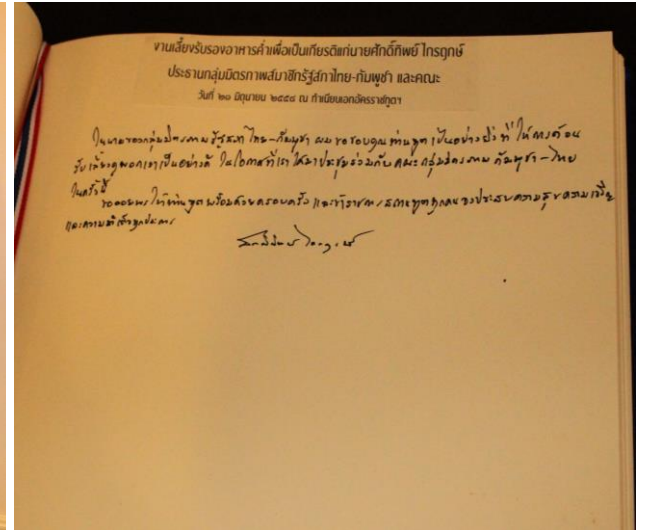 งานเลี้ยงรับรองอาหารค่ำเพื่อเป็นเกียรติแก่นายศักดิ์ทิพย์ ไกรฤกษ์
ประธานกลุ่มมิตรภาพสมาชิกรัฐสภาไทย-กัมพูชา และคณะ
วันที่ ๒๑ มิถุนายน ๒๕๕๘ ณ ทำเนียบเอกอัครราชทูตฯ
ในนามของกลุ่มมิตรภาพรัฐสภาไทย-กัมพูชา ผมขอขอบคุณท่านทูตเป็นอย่างยิ่งที่ให้การต้อน
รับเลี้ยงดูพวกเราเป็นอย่างดี ในโอกาสที่เราได้มาประชุมร่วมกับคณะกลุ่มมิตรภาพกัมพูชา-ไทย
ในครั้งนี้
ขออวยพรให้ท่านทูตพร้อมด้วยครอบครัว และข้าราชการสถานทูตทุกคนจงประสบความสุขความเจริญ
และความสำเร็จทุกประการ